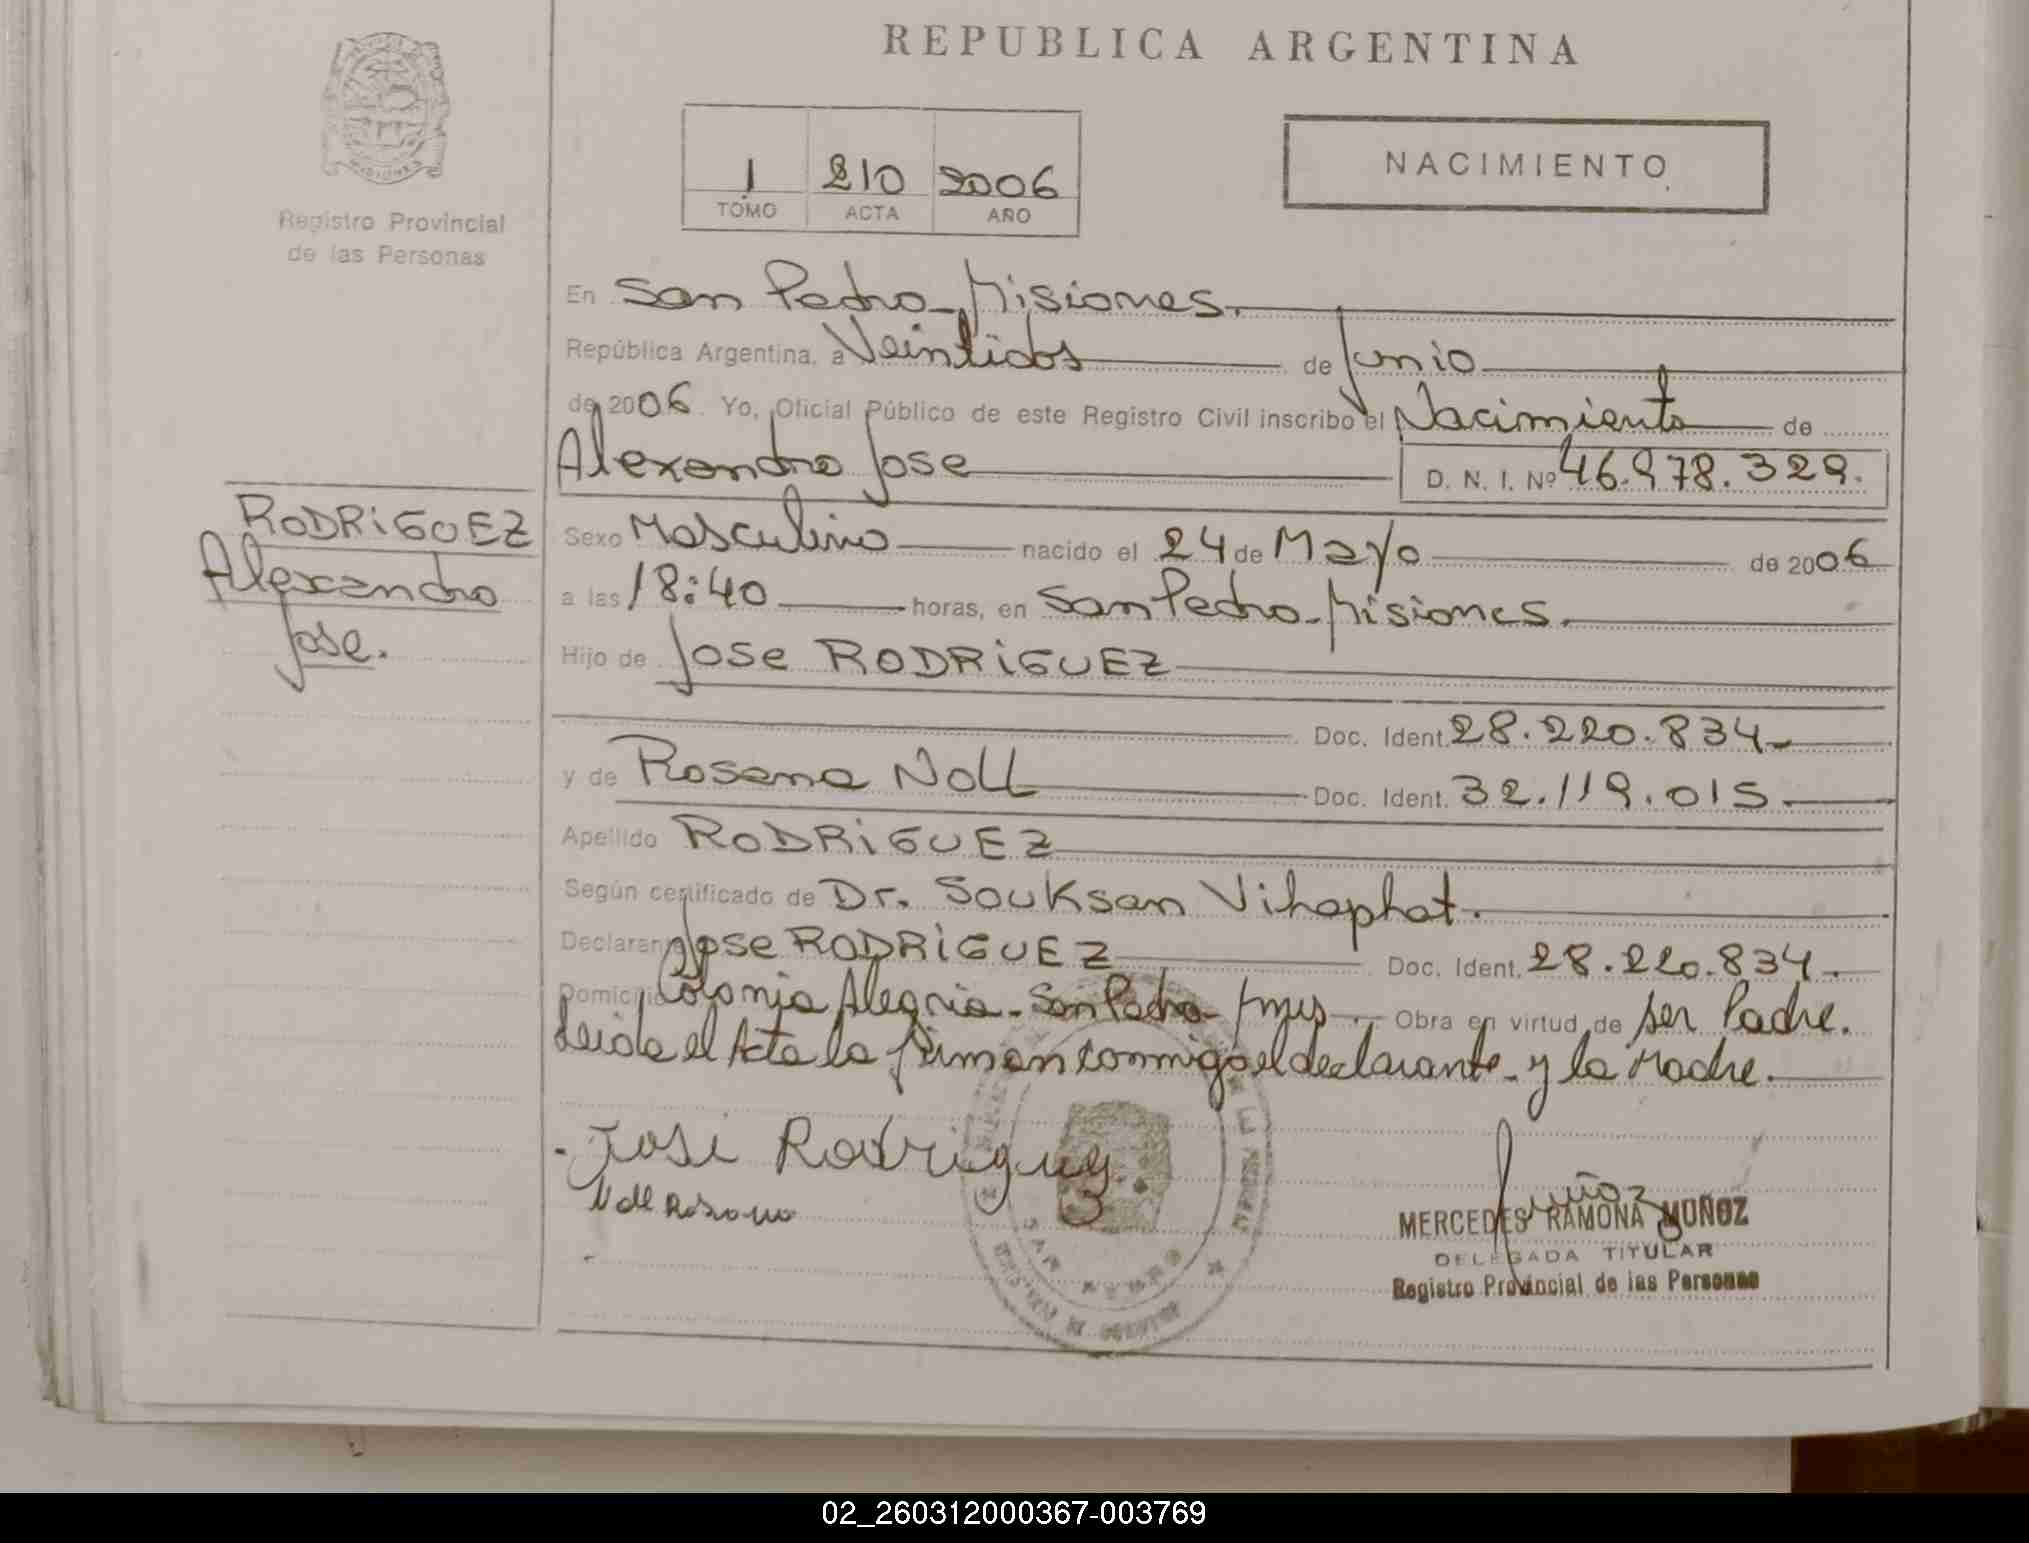 REPUBLICA ARGENTINA
1 210 2006
TOMO ACTA AÑO
NACIMIENTO
Registro Provincial
de las Personas
En San Pedro - Misiones.
República Argentina, a Veintidos de Junio
de 2006. Yo, Oficial Público de este Registro Civil inscribo el Nacimiento de
Alexandro Jose D. N. I. Nº 46.978.329.
RODRIGUEZ
Alexandro
Jose.
Sexo Masculino nacido el 24 de Mayo de 2006
a las 18:40 horas, en San Pedro - Misiones.
Hijo de Jose RODRIGUEZ
Doc. Ident. 28.220.834-
y de Rosana Noll Doc. Ident. 32.119.015.
Apellido RODRIGUEZ
Según certificado de Dr. Souksan Vihaphat.
Declarante Jose RODRIGUEZ Doc. Ident. 28.220.834.
Domicilio Colonia Alegria - San Pedro - Mnes. Obra en virtud de ser Padre.
Leida el Acta la firman conmigo el declarante y la Madre.
José Rodriguez
Noll Rosana
Muñoz
MERCEDES RAMONA MUÑOZ
DELEGADA TITULAR
Registro Provincial de las Personas
02_260312000367-003769